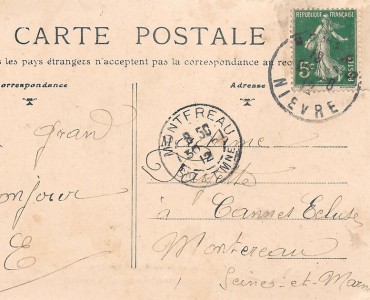 CARTE POSTALE
s les pays étrangers n'acceptent pas la correspondance au rec
orrespondance
Adresse
RÉPUBLIQUE FRANÇAISE
5c
POSTES
NIEVRE
MONTEREAU
8 30
30 12
Gran
onjour
E
à Cannes Ecluse
Montereau
Seine-et-Marn